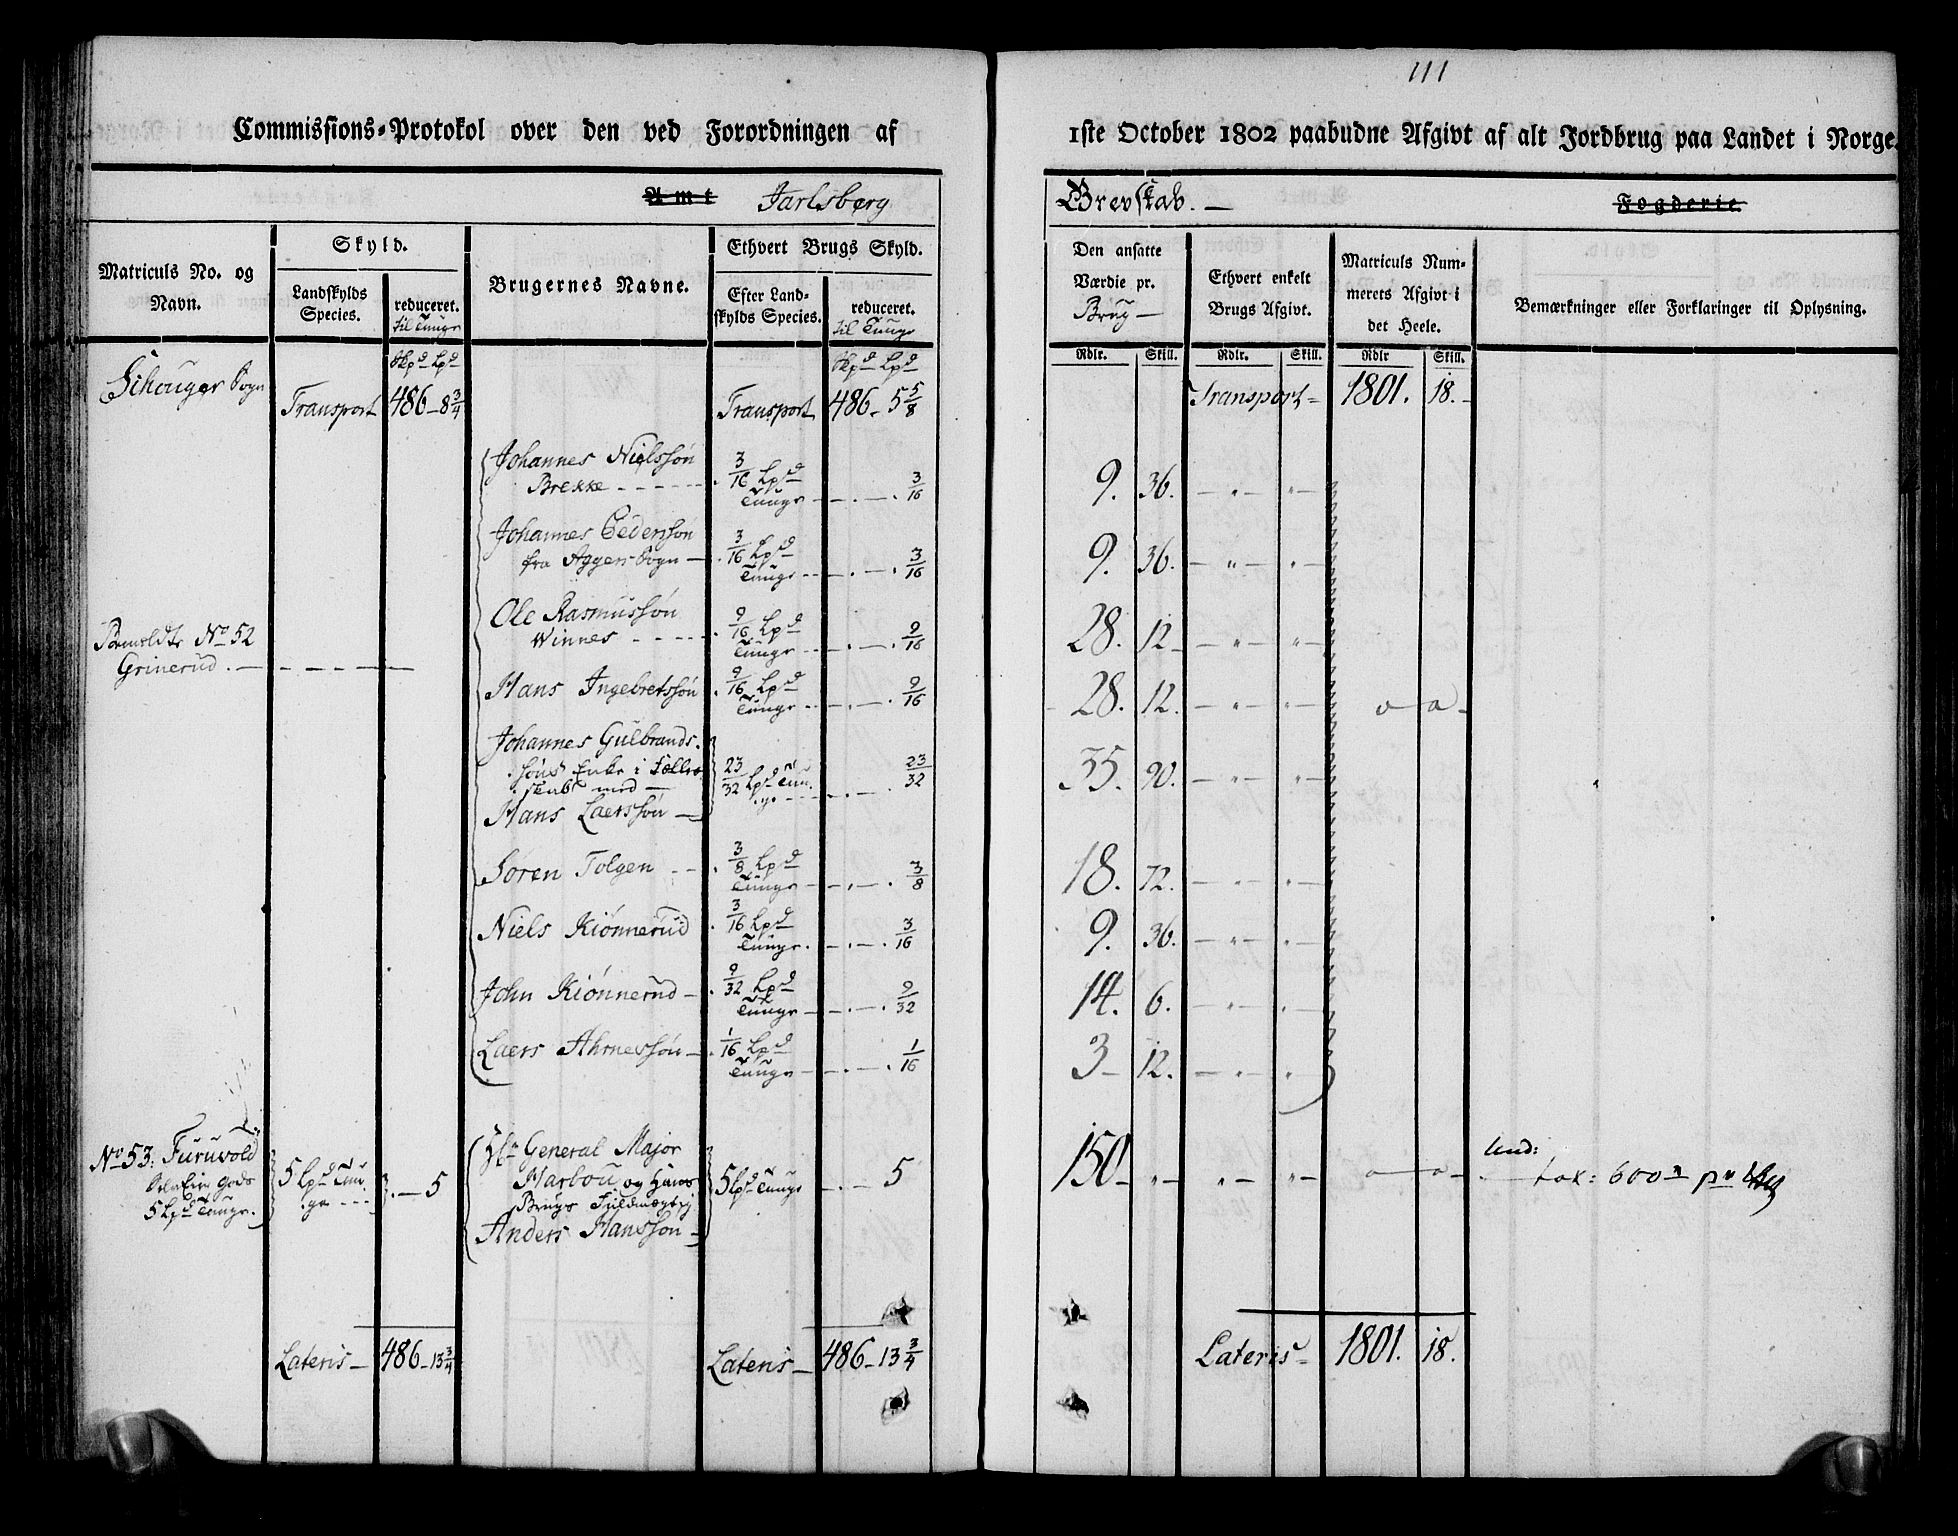 111
Commissions-Protokol over den ved Forordningen af 1ste October 1802 paabudne Afgivt af alt Jordbrug paa Landet i Norge.
Amt Jarlsberg Grevskab. — Fogderie
Matriculs No. og Navn.
Skyld.
Landskylds Species.
reduceret. til Tunge
Brugernes Navne.
Ethvert Brugs Skyld.
Efter Landskylds Species.
reduceret. til Tunge
Den ansatte Værdie pr. Brug —
Ethvert enkelt Brugs Afgivt.
Matriculs Nummerets Afgivt i det Heele.
Bemærkninger eller Forklaringer til Oplysning.
Rdlr. Skill. Rdlr. Skill. Rdlr Skill.
Skpd Lpd Skpd Lpd
Schouger Sogn Transport 486 - 8 3/4 Transport 486 - 5 5/8 Transport 1801. 18.
Johannes Nielssøn Brekke 3/16 Lpd Tunge 3/16 9. 36. — " — " —
Johannes Pederssøn fra Aggers Sogn 3/16 Lpd Tunge 3/16 9. 36. — " — " —
No 52 Grinerud
Ole Rasmussøn Winnes 9/16 Lpd Tunge 9/16 28. 12 — " — "
Hans Ingebretssøn 9/16 Lpd Tunge 9/16 28. 12. — " — " — o — o —
Johannes Gulbrands-
søns Enke i Fælles-
skab med —
Hans Laerssøn — 23/32 Lpd Tunge 23/32 35. 90. — " — "
Søren Tolgen 3/8 Lpd Tunge 3/8 18. 72. — " — " —
Niels Kiønnerud 3/16 Lpd Tunge 3/16 9. 36. — " — " —
John Kiønnerud 9/32 Lpd Tunge 9/32 14. 6. — " — " —
Laers Ahrnessøn 1/16 Lpd Tunge 1/16 3 — 12. — " — "
No 53: Furuvold
Gods
5 Lpd Tunge.
5 Lpd Tunge 5
Hr General Major
Harbou og Hans
Brugs Fuldmægtig
Anders Hanssøn —
5 Lpd Tunge 5 150 — " — " — " — o — o —
Und:
tax: 600
Lateris — 486 - 13 3/4 Lateris — 486 - 13 3/4 Lateris 1801. 18.